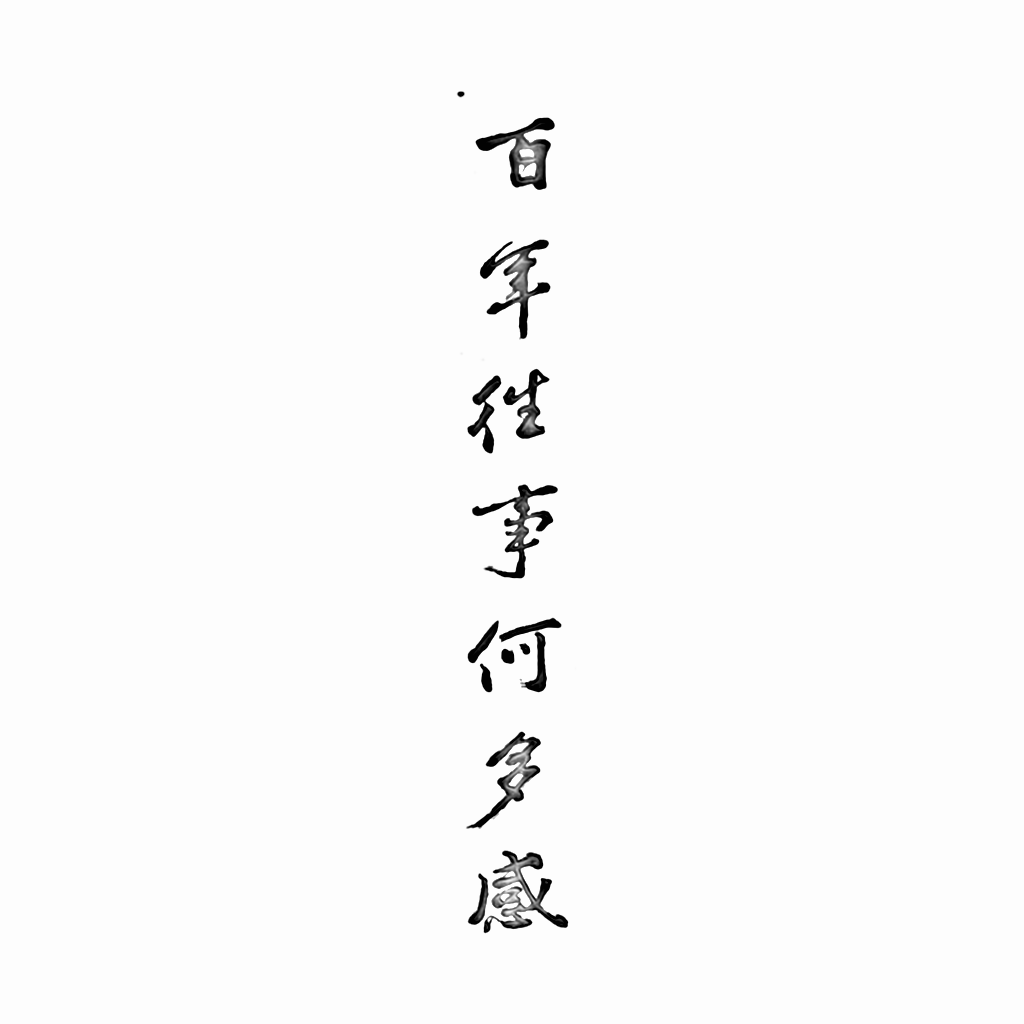 百年往事何多感